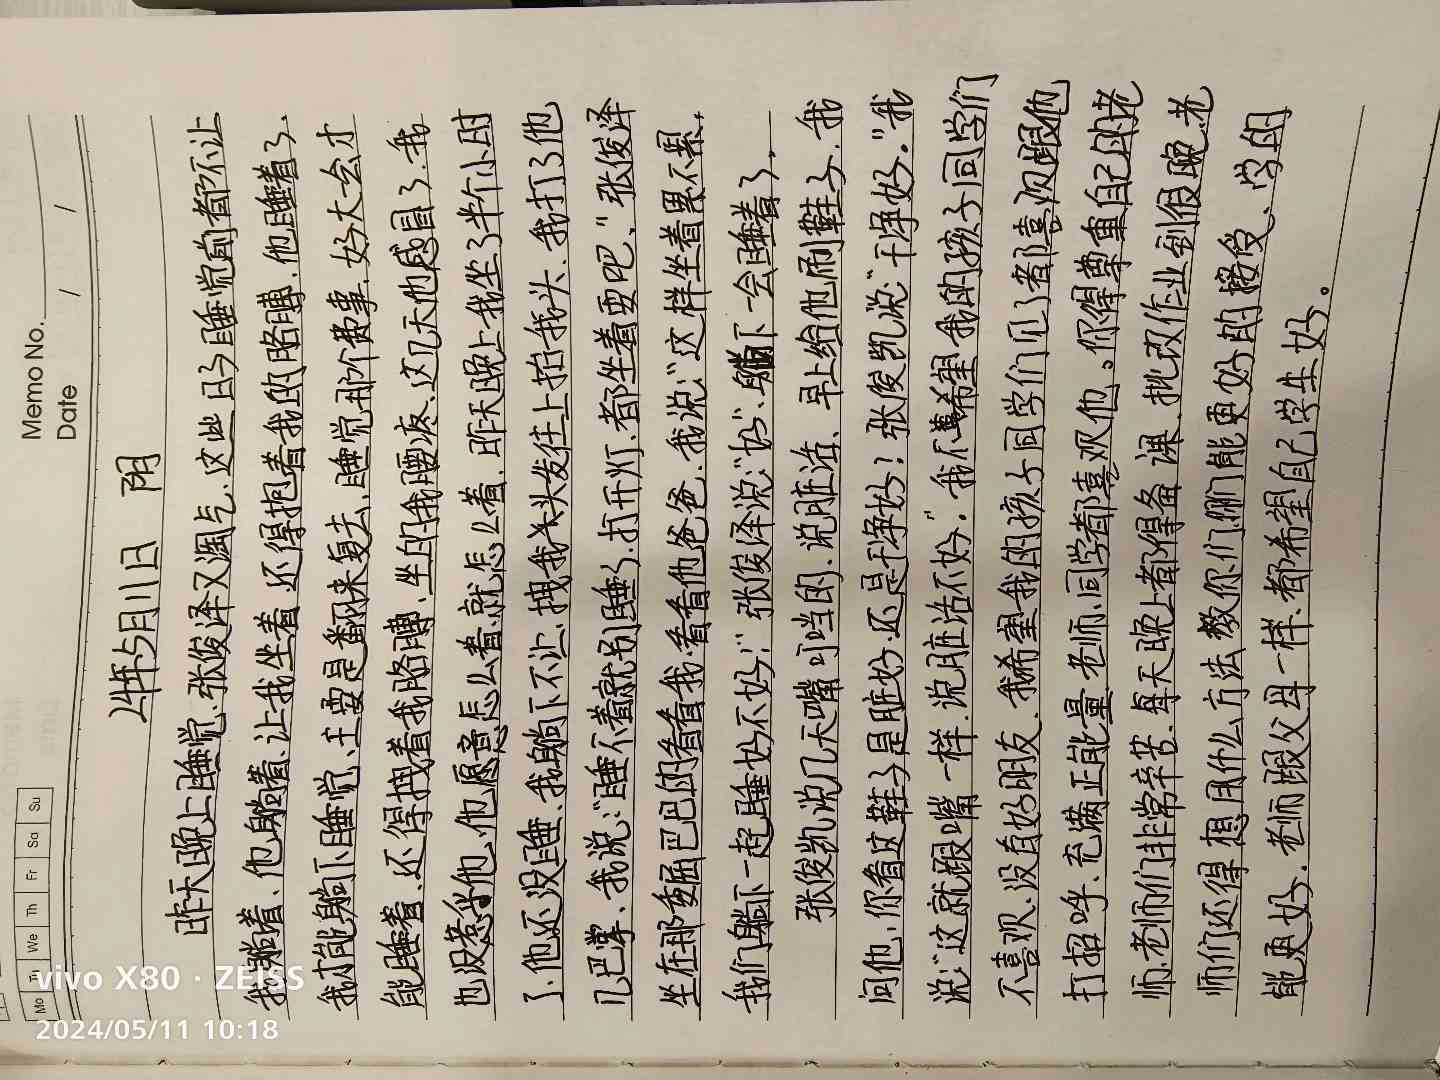 Mo Tu We Th Fr Sa Su
Memo No.
Date / /
24年5月11日 阴
昨天晚上睡觉、张俊泽又淘气、这些日子睡觉前都不让
我躺着、他躺着、让我坐着、还得抱着我的胳膊、他睡着了、
我才能躺下睡觉、主要是翻来复去、睡觉那个费事、好大会才
能睡着、还得拽着我胳膊、坐的我腰疼、这几天他感冒了、我
也没惹乎他、他愿意怎么着、就怎么着、昨天晚上我坐了半个小时
了、他还没睡、我躺下不让、拽我头发往上抬我头、我打了他
几巴掌、我说:“睡不着就别睡了、打开灯、都坐着耍吧、”张俊泽
坐在那委屈巴巴的看看我、看看他爸爸、我说:“这样坐着累不累、
我们躺下一起睡好不好!”张俊泽说:“好”、躺下一会睡着了、
张俊凯说几天嘴叮当的、说脏话、早上给他刷鞋子、我
问他、你看这鞋子是脏好、还是干净好!张俊凯说:“干净好。”我
说:“这就跟嘴一样、说脏话不好。”我不希望我的孩子同学们
不喜欢、没有好朋友、我希望我的孩子同学们见了都喜欢跟他
打招呼、充满正能量、老师、同学都喜欢他。你得尊重自己的老
师、老师们非常辛苦、每天晚上都得备课、批改作业到很晚、老
师们还得想用什么方法教你们、你们能更好的接受、学的
能更好、老师跟父母一样、都希望自己学生好。
vivo X80 · ZEISS
2024/05/11 10:18